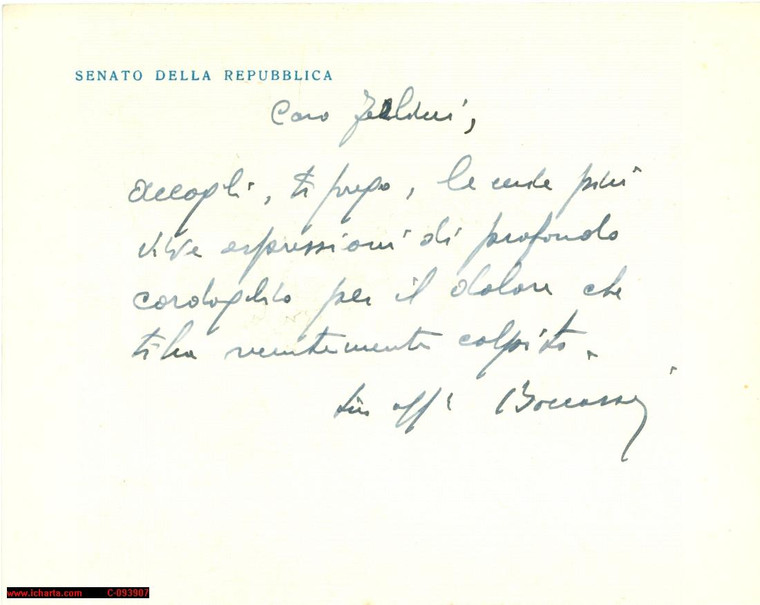 SENATO DELLA REPUBBLICA
Caro
Accogli, ti prego, le più
vive espressioni di profondo
cordoglio per il dolore che
ti ha recentemente colpito.
tuo aff. Boccassi
www.icharta.com C-093907